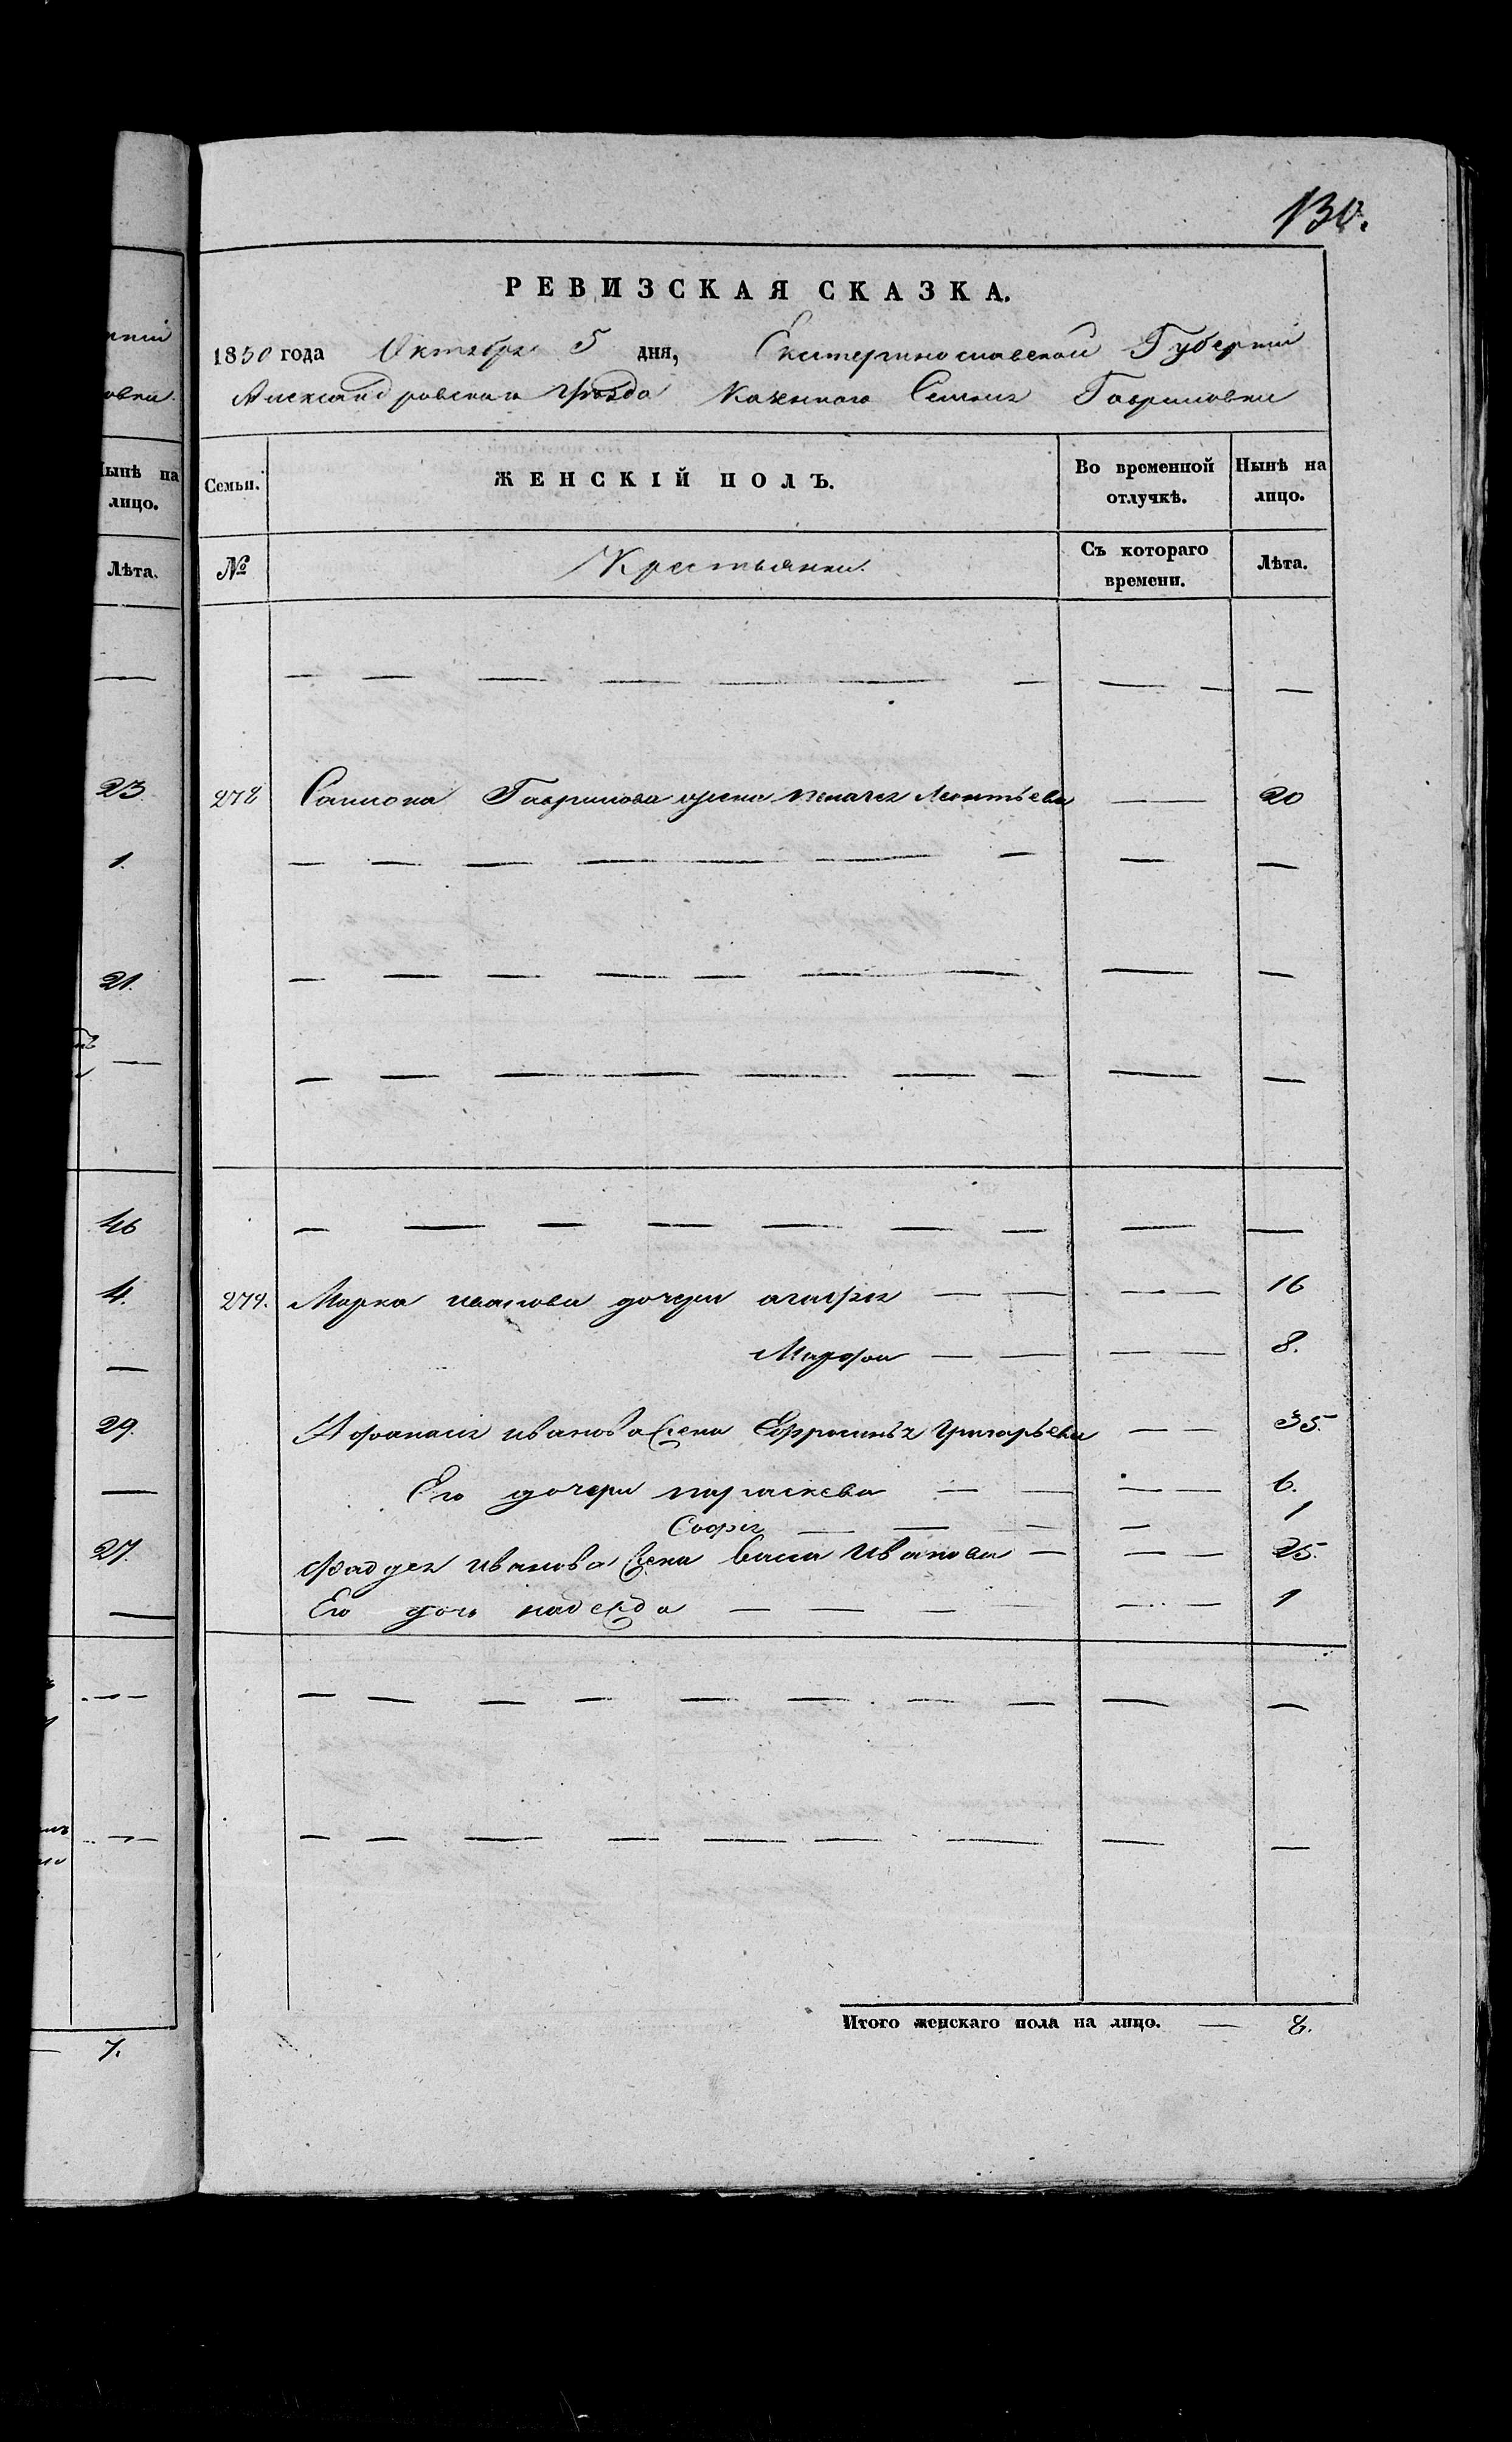 130.
РЕВИЗСКАЯ СКАЗКА.
1850 года Октября 5 дня, Екатеринославской Губерніи
Александровскаго уѣзда Казеннаго Селенія Гавриловки
Семьи. ЖЕНСКІЙ ПОЛЪ. Во временной отлучкѣ. Нынѣ на лицо.
№ Крестьянки. Съ котораго времени. Лѣта.
278 Самсона Гаврилова жена Пелагея Леонтьева — 20
279. Марка иванова дочери агафія — — — — 16
Марфа — — — — 8.
Афонасія иванова жена Ефросинья Григорьева — — 35.
Его дочери параскева — — — — 6.
Софія — — — — 1
Фадея иванова жена васса Иванова — — — 25.
Его дочь надежда — — — — — — 1
Итого женскаго пола на лицо. — 8.
ынѣ на
лицо.
Лѣта.
23
1.
21.
46
4.
29.
27.
7.